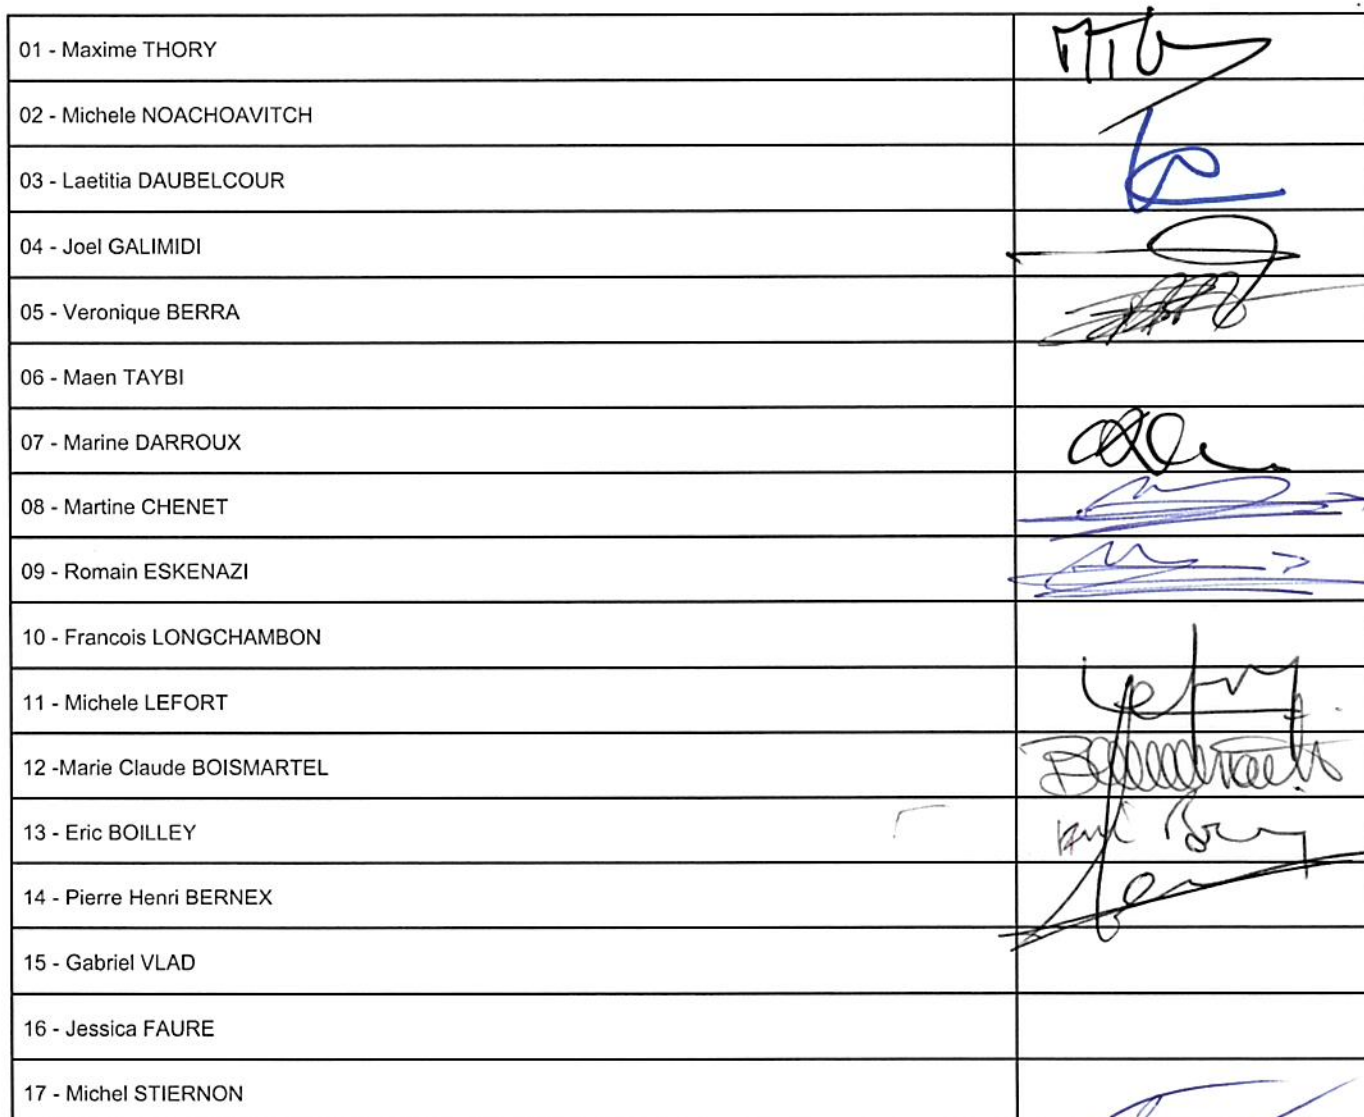 01 - Maxime THORY
02 - Michele NOACHOAVITCH
03 - Laetitia DAUBELCOUR
04 - Joel GALIMIDI
05 - Veronique BERRA
06 - Maen TAYBI
07 - Marine DARROUX
08 - Martine CHENET
09 - Romain ESKENAZI
10 - Francois LONGCHAMBON
11 - Michele LEFORT
12 -Marie Claude BOISMARTEL
13 - Eric BOILLEY
14 - Pierre Henri BERNEX
15 - Gabriel VLAD
16 - Jessica FAURE
17 - Michel STIERNON